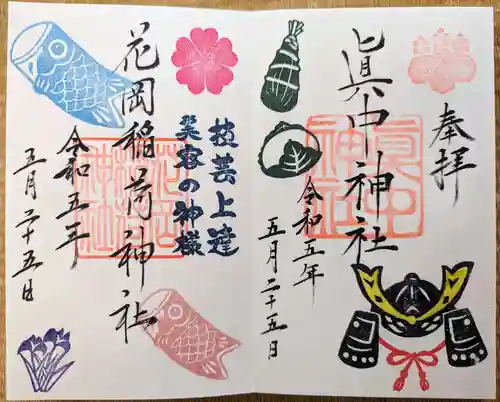 奉拝
眞中神社
眞中神社
令和五年
五月二十五日
技芸上達
笑容の神様
花岡稲荷神社
令和五年
五月二十五日